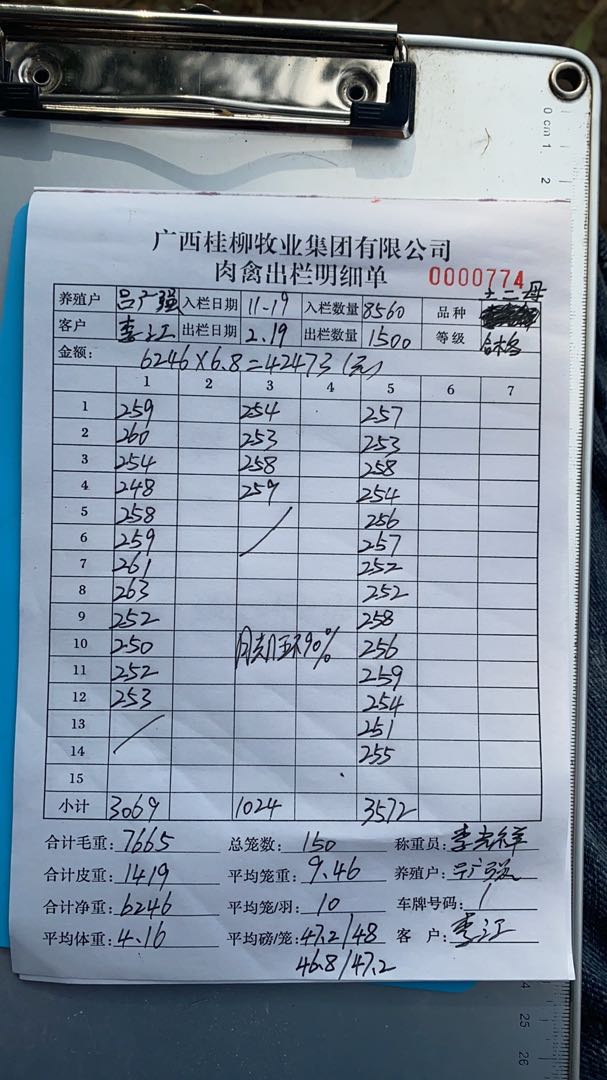 广西桂柳牧业集团有限公司
肉禽出栏明细单 0000774
土二母
养殖户 吕广强 入栏日期 11-19 入栏数量 8560 品种
客户 李江 出栏日期 2.19 出栏数量 1500 等级 合格
金额: 6246×6.8=42473(元)
1 2 3 4 5 6 7
1 259 254 257
2 260 253 253
3 254 258 258
4 248 259 254
5 258 256
6 259 257
7 261 252
8 263 252
9 252 258
10 250 90% 256
11 252 259
12 253 254
13 251
14 255
15
小计 3069 1024 3572
合计毛重: 7665 总笼数: 150 称重员:
合计皮重: 1419 平均笼重: 9.46 养殖户: 吕广强
合计净重: 6246 平均笼/羽: 10 车牌号码: 1
平均体重: 4.16 平均磅/笼: 47.2/48 客 户: 李江
46.8/47.2
0 cm 1 2
24
25
26